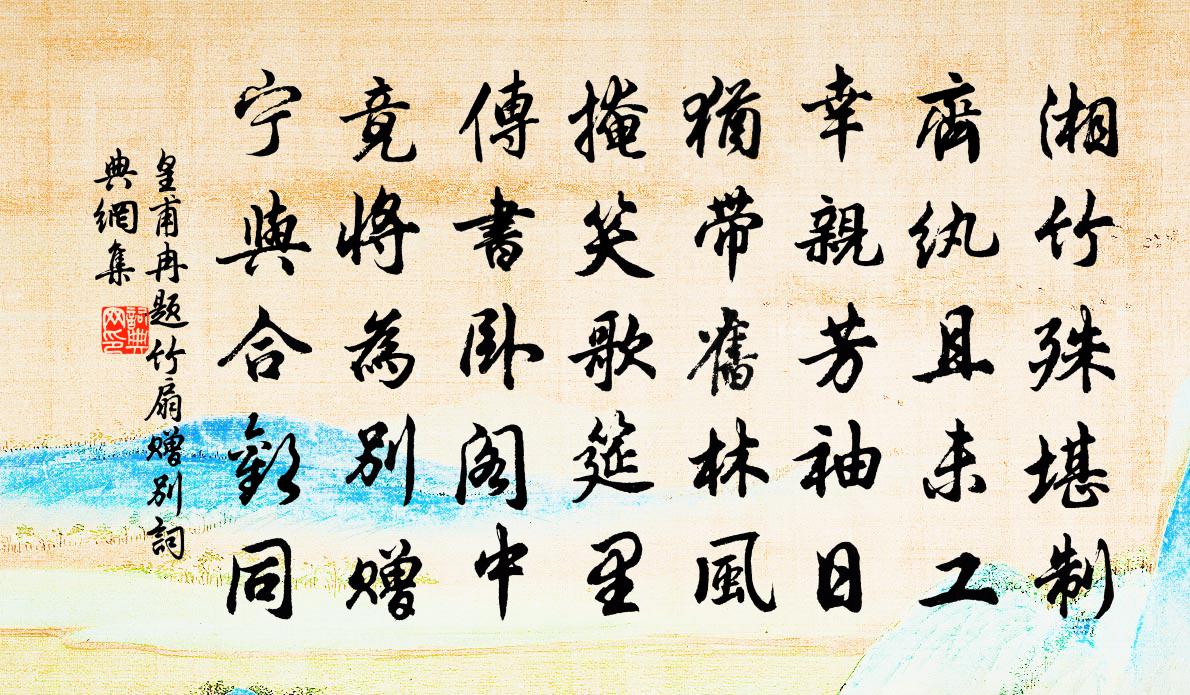 湘竹殊堪制
齊紈且未工
幸親芳袖日
猶帶舊林風
掩笑歌筵里
傳書卧閣中
竟將為別贈
宁與合歡同
皇甫冉題竹扇贈別詞
典網集
詞典
网印